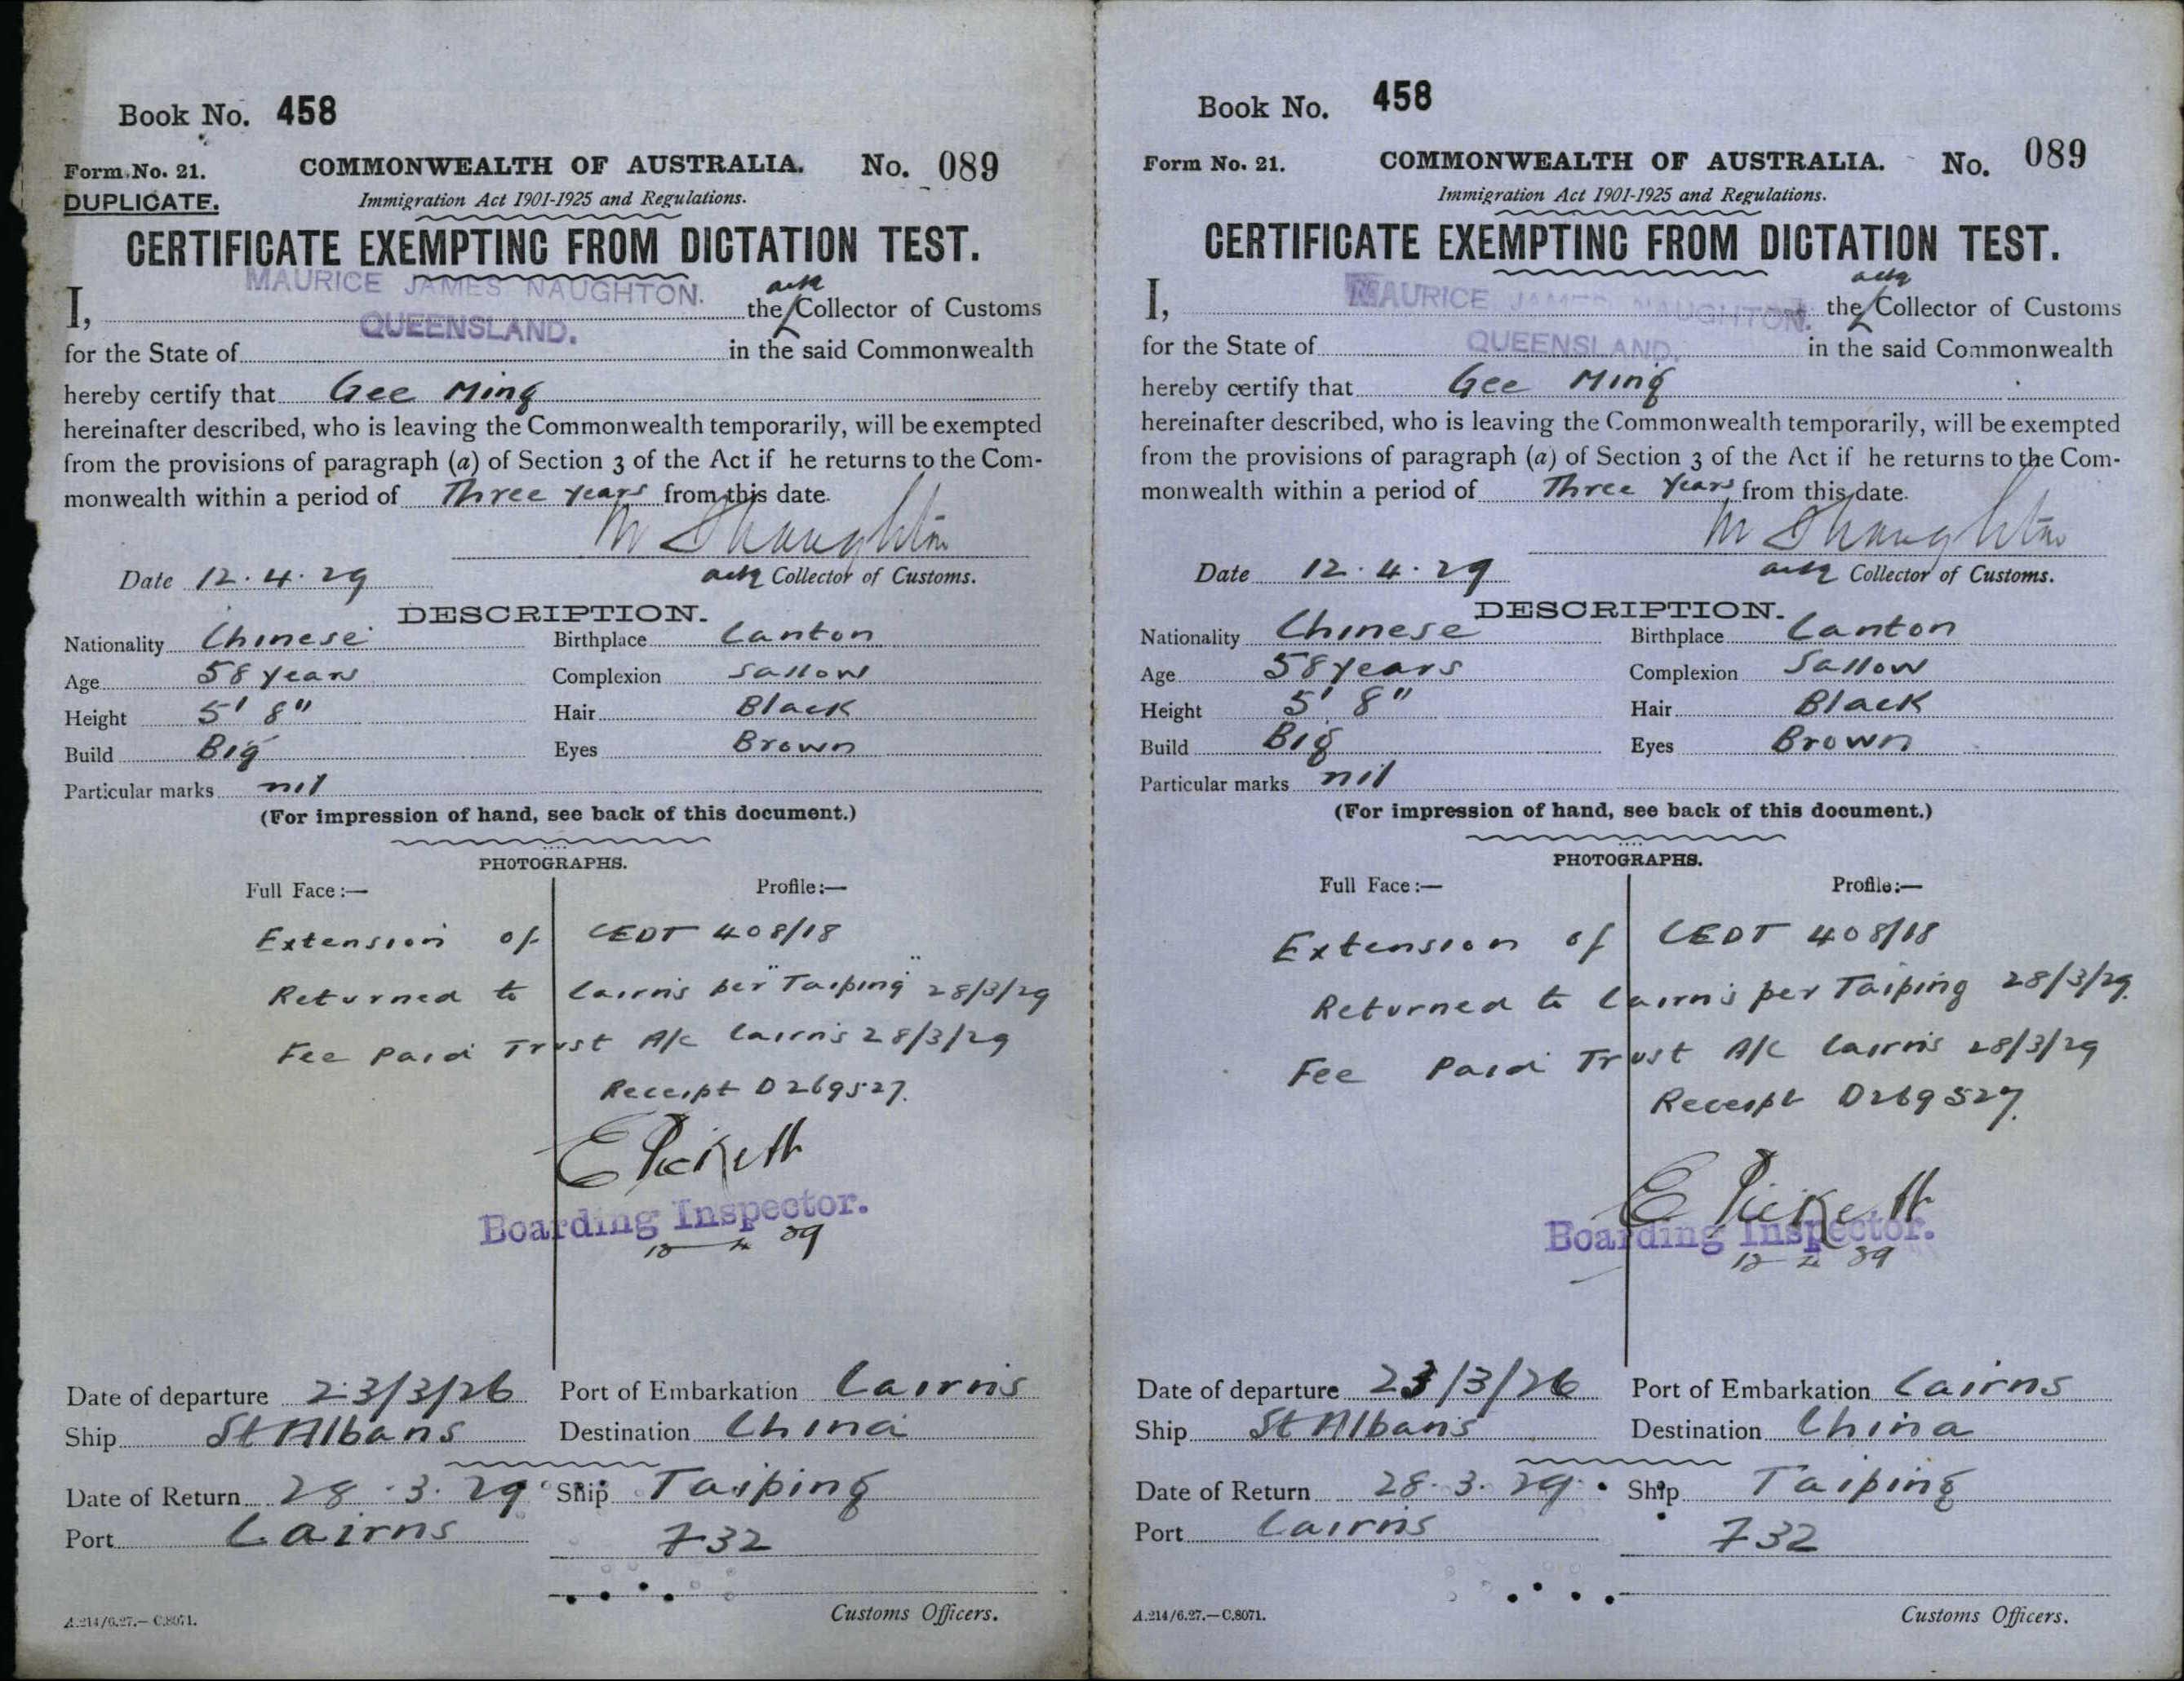 Book No. 458
Form No. 21. COMMONWEALTH OF AUSTRALIA. No. 089
DUPLICATE. Immigration Act 1901-1925 and Regulations.
CERTIFICATE EXEMPTING FROM DICTATION TEST.
MAURICE JAMES NAUGHTON. actg
I, the Collector of Customs
QUEENSLAND.
for the State of in the said Commonwealth
hereby certify that Gee Ming
hereinafter described, who is leaving the Commonwealth temporarily, will be exempted
from the provisions of paragraph (a) of Section 3 of the Act if he returns to the Com-
monwealth within a period of Three years from this date.
Date 12.4.29 actg Collector of Customs.
DESCRIPTION.
Nationality Chinese Birthplace Canton
Age 58 years Complexion Sallow
Height 5' 8" Hair Black
Build Big Eyes Brown
Particular marks nil
(For impression of hand, see back of this document.)
PHOTOGRAPHS.
Full Face:— Profile:—
Extension of CEDT 408/18
Returned to Cairns per "Taiping" 28/3/29
Fee Paid Trust A/c Cairns 28/3/29
Receipt D269527.
E Pickett
Boarding Inspector.
Date of departure 23/3/26 Port of Embarkation Cairns
Ship St Albans Destination China
Date of Return 28.3.29 Ship Taiping
Port Cairns 732
Customs Officers.
A.214/6.27.—C.8071.
Book No. 458
Form No. 21. COMMONWEALTH OF AUSTRALIA. No. 089
Immigration Act 1901-1925 and Regulations.
CERTIFICATE EXEMPTING FROM DICTATION TEST.
MAURICE JAMES NAUGHTON. actg
I, the Collector of Customs
QUEENSLAND.
for the State of in the said Commonwealth
hereby certify that Gee Ming
hereinafter described, who is leaving the Commonwealth temporarily, will be exempted
from the provisions of paragraph (a) of Section 3 of the Act if he returns to the Com-
monwealth within a period of Three Years from this date.
Date 12.4.29 actg Collector of Customs.
DESCRIPTION.
Nationality Chinese Birthplace Canton
Age 58 years Complexion Sallow
Height 5' 8" Hair Black
Build Big Eyes Brown
Particular marks nil
(For impression of hand, see back of this document.)
PHOTOGRAPHS.
Full Face:— Profile:—
Extension of CEDT 408/18
Returned to Cairns per Taiping 28/3/29.
Fee Paid Trust A/C Cairns 28/3/29
Receipt D269527.
E Pickett
Boarding Inspector.
Date of departure 23/3/26 Port of Embarkation Cairns
Ship St Albans Destination China
Date of Return 28.3.29. Ship Taiping
Port Cairns 732
Customs Officers.
A.214/6.27.—C.8071.